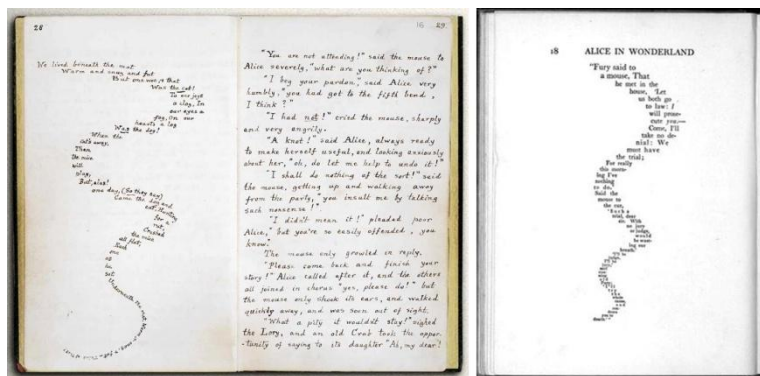 28
We lived beneath the mat
Warm and snug and fat
But one woe, & that
Was the cat!
To our joys
a clog, In
our eyes a
fog, On our
hearts a log
Was the dog!
When the
cat's away,
Then
The mice
will
play,
But, alas!
one day, (So they say)
Came the dog and
cat, Hunting
for a
rat,
Crushed
the mice
all flat,
Each
one
as
he
sat
Underneath the mat, Warm, & snug, & fat
29
"You are not attending!" said the mouse to
Alice severely, "what are you thinking of?"
"I beg your pardon," said Alice very
humbly, "you had got to the fifth bend,
I think?"
"I had not!" cried the mouse, sharply
and very angrily.
"A knot!" said Alice, always ready
to make herself useful, and looking anxiously
about her, "oh, do let me help to undo it!"
"I shall do nothing of the sort!" said
the mouse, getting up and walking away
from the party, "you insult me by talking
such nonsense!"
"I didn't mean it!" pleaded poor
Alice," but you're so easily offended, you
know."
The mouse only growled in reply.
"Please come back and finish your
story!" Alice called after it, and the others
all joined in chorus "yes, please do!" but
the mouse only shook its ears, and walked
quickly away, and was soon out of sight.
"What a pity it wouldn't stay!" sighed
the Lory, and an old Crab took the oppor-
-tunity of saying to its daughter "Ah, my dear!
18 ALICE IN WONDERLAND
"Fury said to
a mouse, That
he met in the
house, 'Let
us both go
to law: I
will prose-
cute you.—
Come, I'll
take no de-
nial: We
must have
the trial;
For really
this morn-
ing I've
nothing
to do.'
Said the
mouse to
the cur,
'Such a
trial, dear
sir, With
no jury
or judge,
would
be wast-
ing our
breath.'